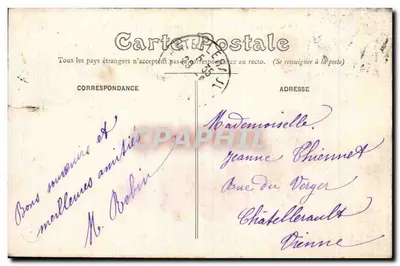 Carte Postale
Tous les pays étrangers n'acceptent pas la correspondance au recto. (Se renseigner à la poste)
CORRESPONDANCE
ADRESSE
Bons souvenirs et
meilleures amitiés
M. Robin
Mademoiselle
Jeanne Thionnet
Rue du Verger
Châtellerault
Vienne
CPAPHIL